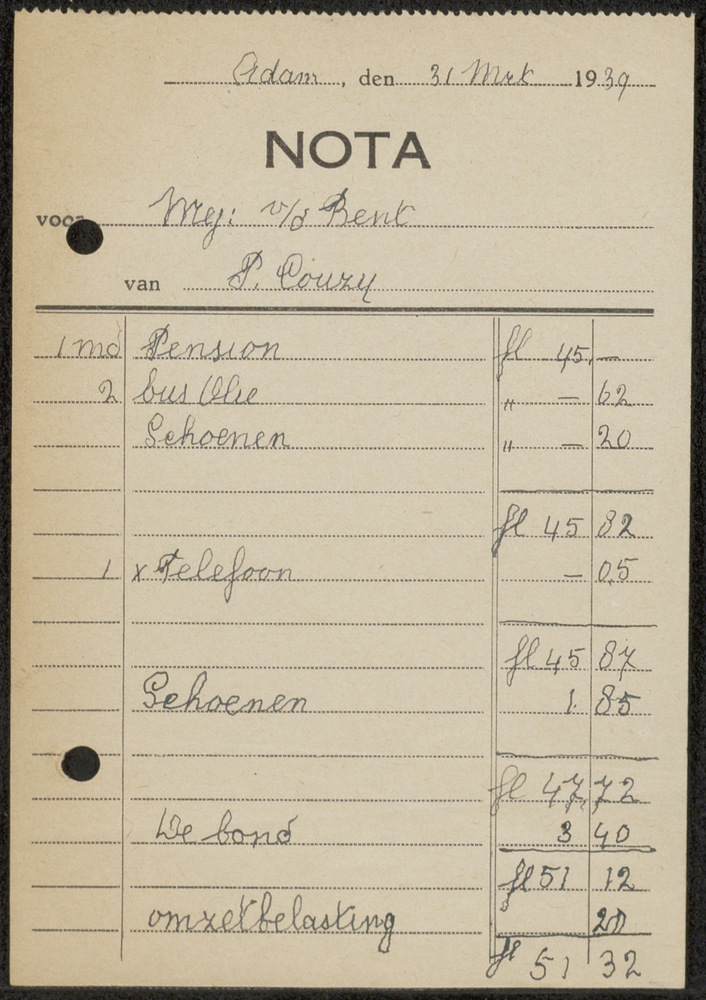 Adam, den 31 Mrt 1939
NOTA
voor Mej: v/d Bent
van P. Couzy
1 md Pension fl 45,-
2 bus Olie " - 62
Schoenen " - 20
fl 45 82
1 x Telefoon - 05
fl 45 87
Schoenen 1. 85
fl 47,72
We bond 3 40
fl 51 12
omzetbelasting 20
fl 51 32